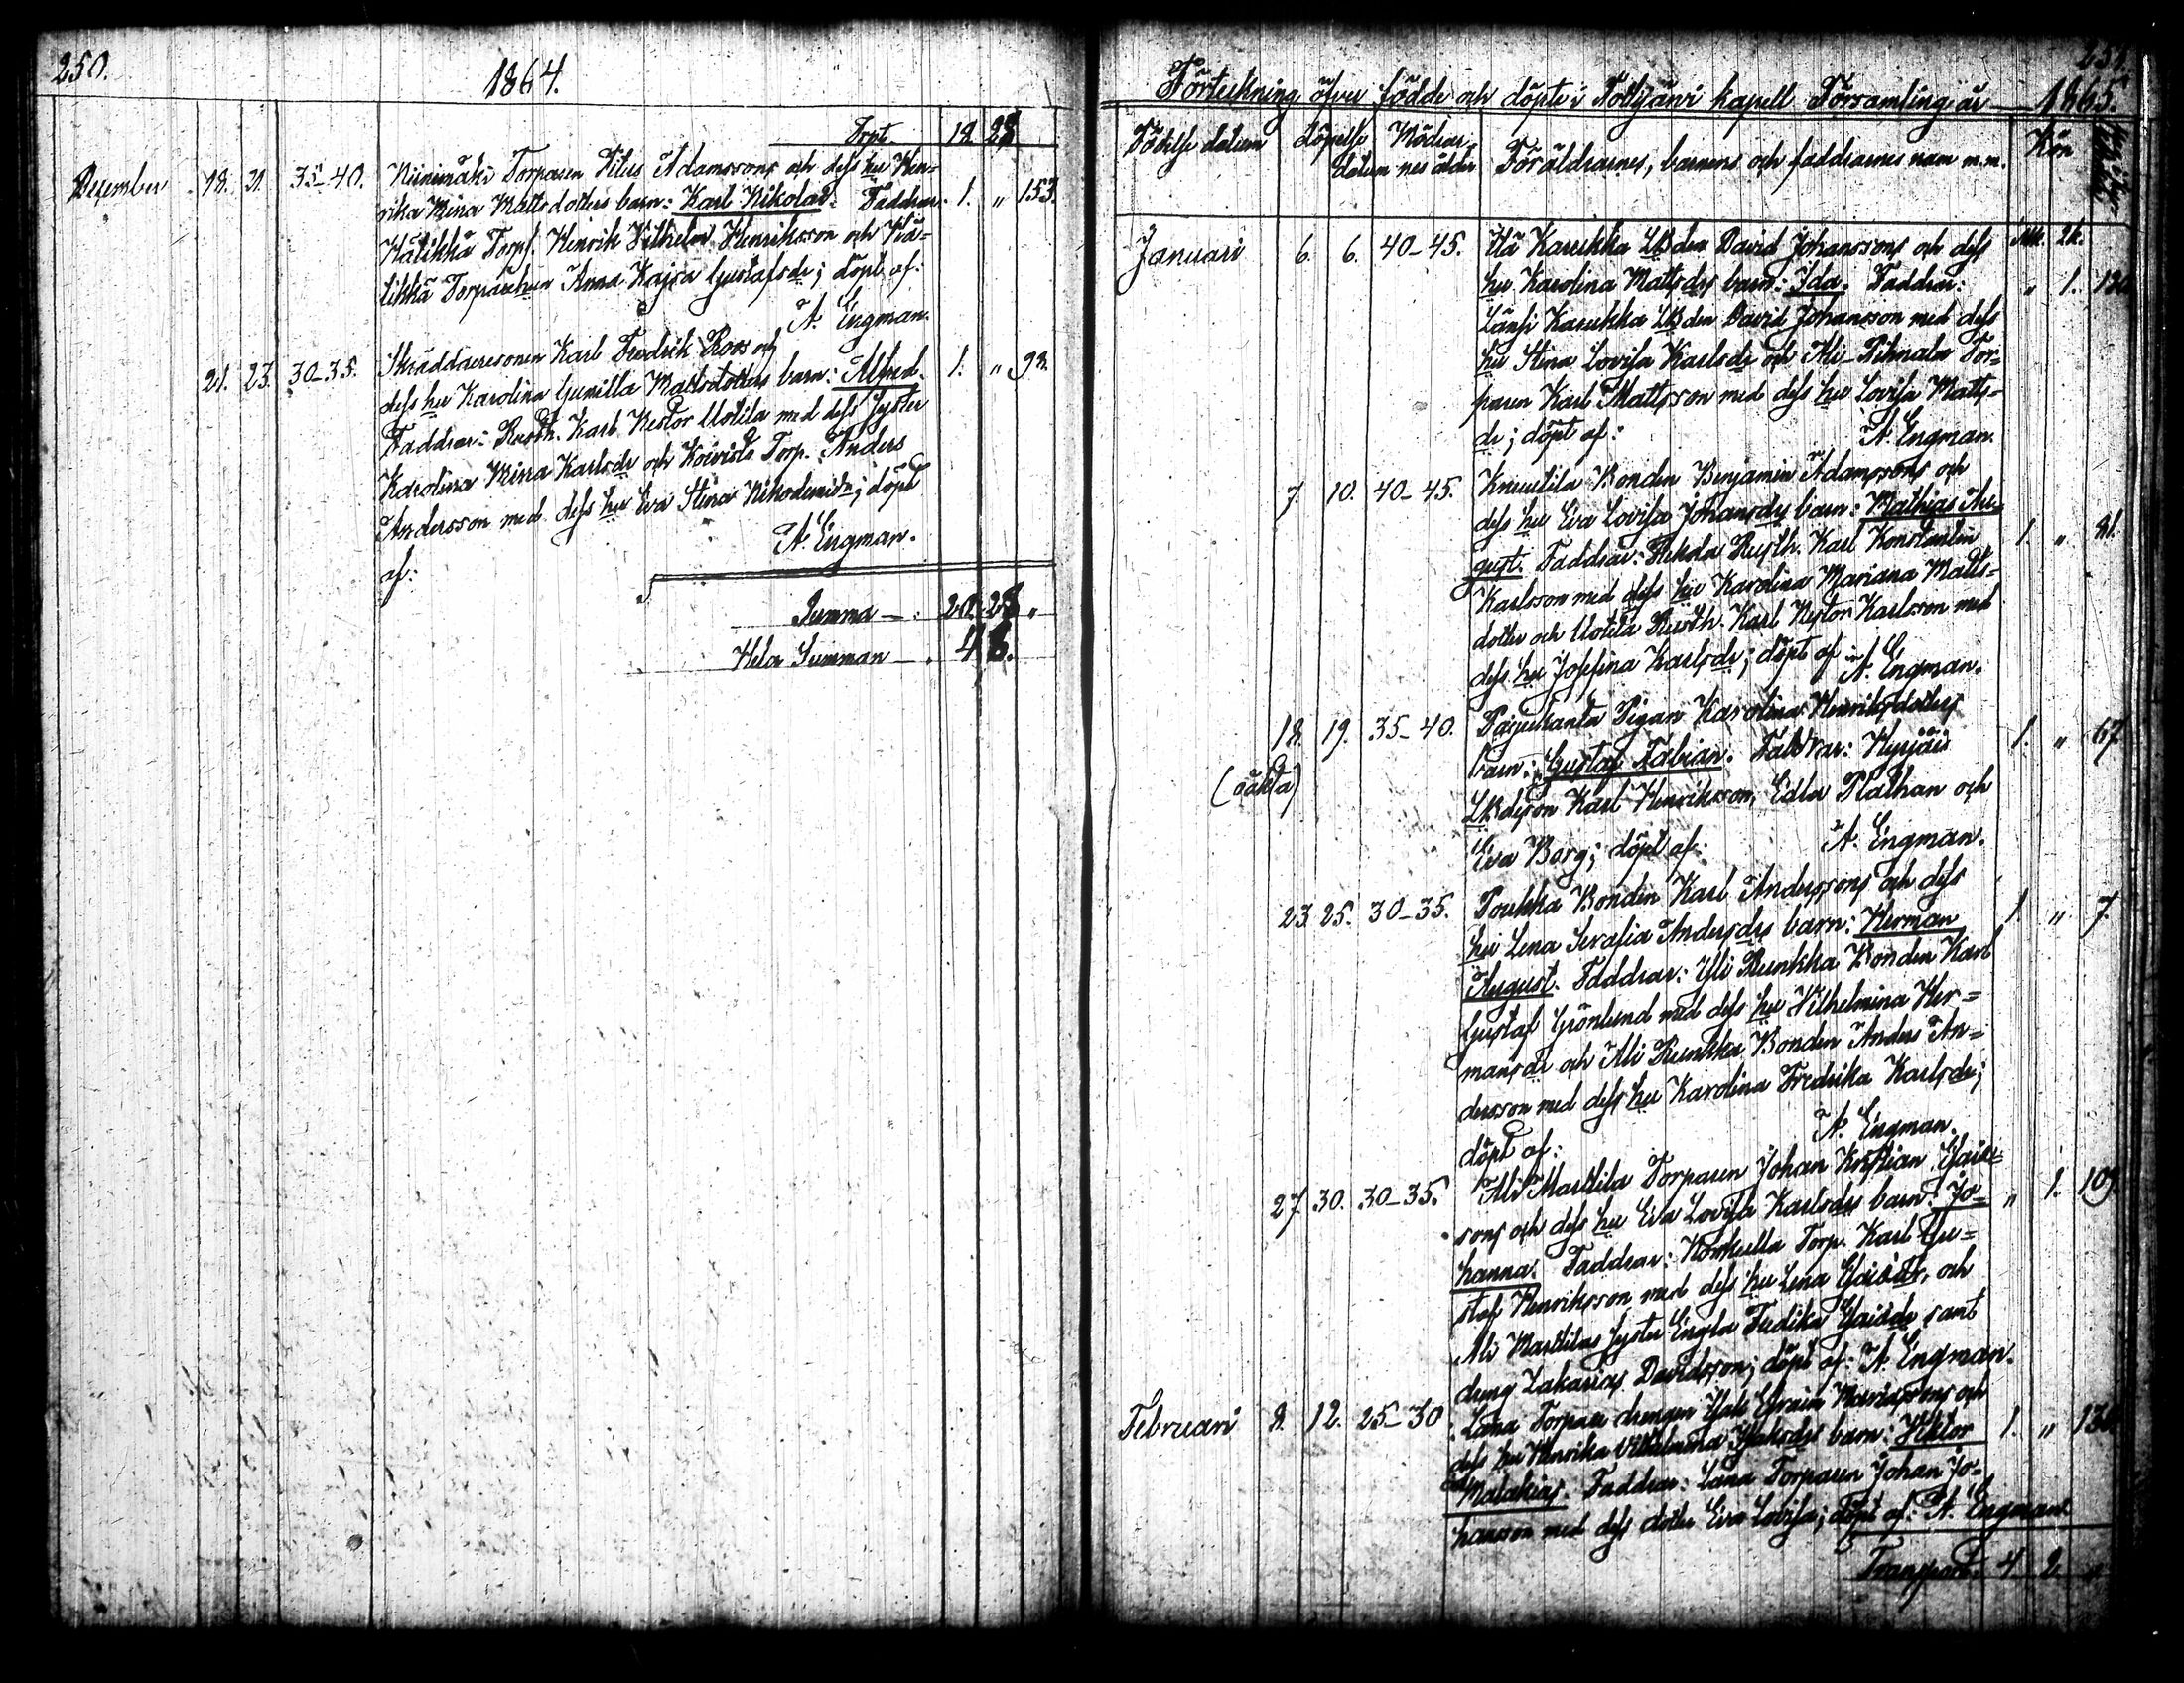 250.
1864.
Trpt 18. 28
December 18. 31. 35-40. Niinimäki Torparen Titus Adamssons och dess hu Hen-
rika Mina Mattsdotters barn: Karl Nikolai. Faddrar: 1. " 153.
Hätikkä Torp. Henrik Vilhelm Henriksson och Hä-
tikkä Torparehun Anna Kajsa Gustafsdr; döpt af:
A. Engman.
21. 23. 30-35. Skräddaresonen Karl Fredrik Roos och
dess hu Karolina Gunilla Mattsdotters barn: Alfred. 1. " 98.
Faddrar: Rusth. Karl Nestor Uotila med dess syster
Karolina Mina Karlsdr och Koivisto Torp. Anders
Andersson med dess hu Eva Stina Nikodemidr; döpt
af: A. Engman.
Summa — : 20. 28 "
Hela Summan — . 48.
251.
Förteckning öfver födde och döpte i Pottijärvi kapell Församling år — 1865.
Födelse datum Döpelse datum Mödrar-nes ålder Föräldrarnes, barnens och faddrarnes namn m.m. Kön
Mk. Qk.
Januari 6. 6. 40-45. Itä Karukka LBden David Johanssons och dess
hu Karolina Mattsdrs barn: Ida. Faddrar: " 1. 130
Länsi Karukka LBden David Johansson med dess
hu Stina Lovisa Karlsdr och Ali-Pihnala Tor-
paren Karl Mattsson med dess hu Lovisa Matts-
dr; döpt af: A. Engman.
7. 10. 40-45. Knuutila Bonden Benjamin Adamssons och
dess hu Eva Lovisa Johansdrs barn: Mathias Au-
gust. Faddrar: Rusth. Karl Konstantin 1. " 81.
Karlsson med dess hu Karolina Mariana Matts-
dotter och Uotila Rusth. Karl Nestor Karlsson med
dess hu Josefina Karlsdr; döpt af A. Engman.
18. 19. 35-40. Pajuranta Pigan Karolina Henriksdotters
(oäkta) barn: Gustaf Fabian. Faddrar: Hyrjäis 1. " 67
LBdeson Karl Henriksson, Edla Plathan och
Eva Borg; döpt af: A. Engman.
23. 25. 30-35. Poukka Bonden Karl Anderssons och dess
hu Lena Serafia Andersdrs barn: Herman 1. " 7.
August. Faddrar: Yli Runkka Bonden Karl
Gustaf Grönlund med dess hu Vilhelmina Her-
mansdr och Ali Runkka Bonden Anders An-
dersson med dess hu Karolina Fredrika Karlsdr;
döpt af: A. Engman.
27. 30. 30-35. Ali Marttila Torparen Johan Kristian Esais-
sons och dess hu Eva Lovisa Karlsdrs barn: Jo- " 1. 109.
hanna. Faddrar: Torp. Karl Gu-
staf Henriksson med dess hu Lena Esaisdr, och
Ali Marttilas syster Engla Fredika Esaisdr samt
dreng Zakarias Davidsson; döpt af: A. Engman.
Februari 8. 12. 25-30 Lana Torpare drengen Isak Efraim Mariassons och
dess hu Henrika Vilhelmina Isaksdrs barn: Viktor 1. " 136
Malakias. Faddrar: Lana Torparen Johan Jo-
hansson med dess dotter Eva Lovisa; döpt af: A. Engman.
Transport: 4 2. "